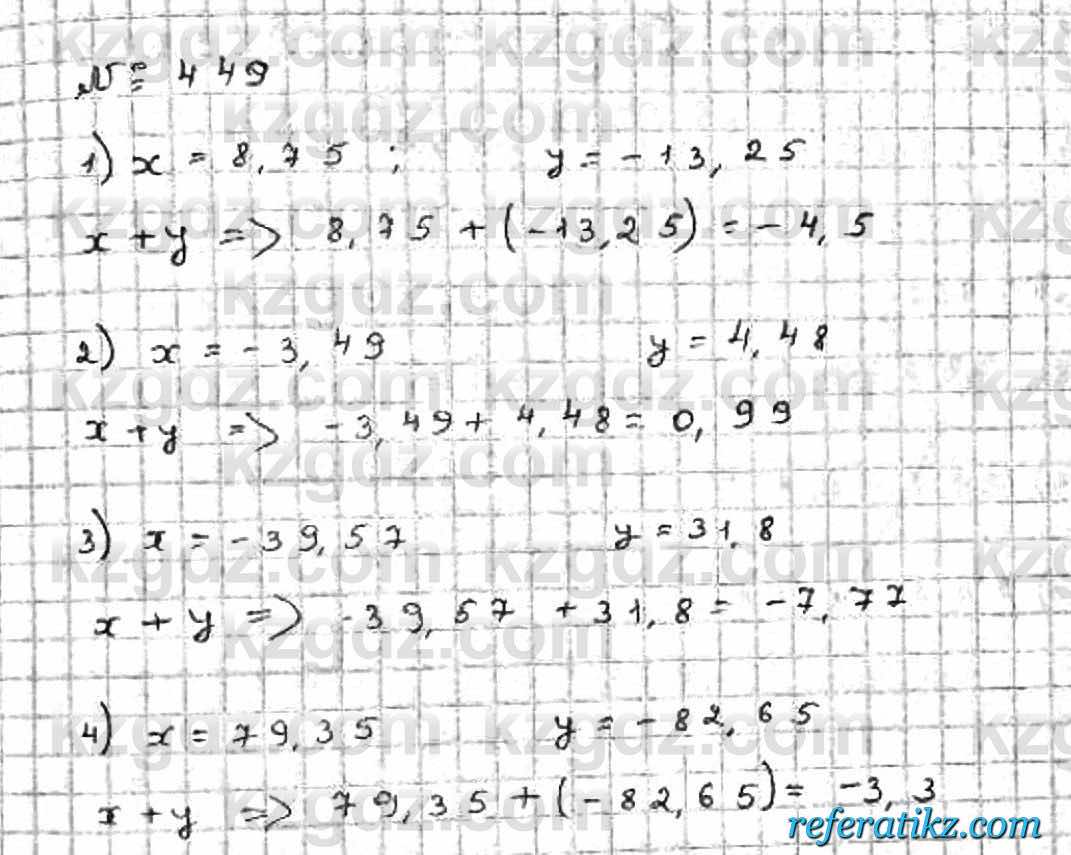 № 449
1) x = 8,75 ; y = -13,25
x + y => 8,75 + (-13,25) = -4,5
2) x = -3,49 y = 4,48
x + y => -3,49 + 4,48 = 0,99
3) x = -39,57 y = 31,8
x + y => -39,57 + 31,8 = -7,77
4) x = 79,35 y = -82,65
x + y => 79,35 + (-82,65) = -3,3
referatikz.com
kzgdz.com